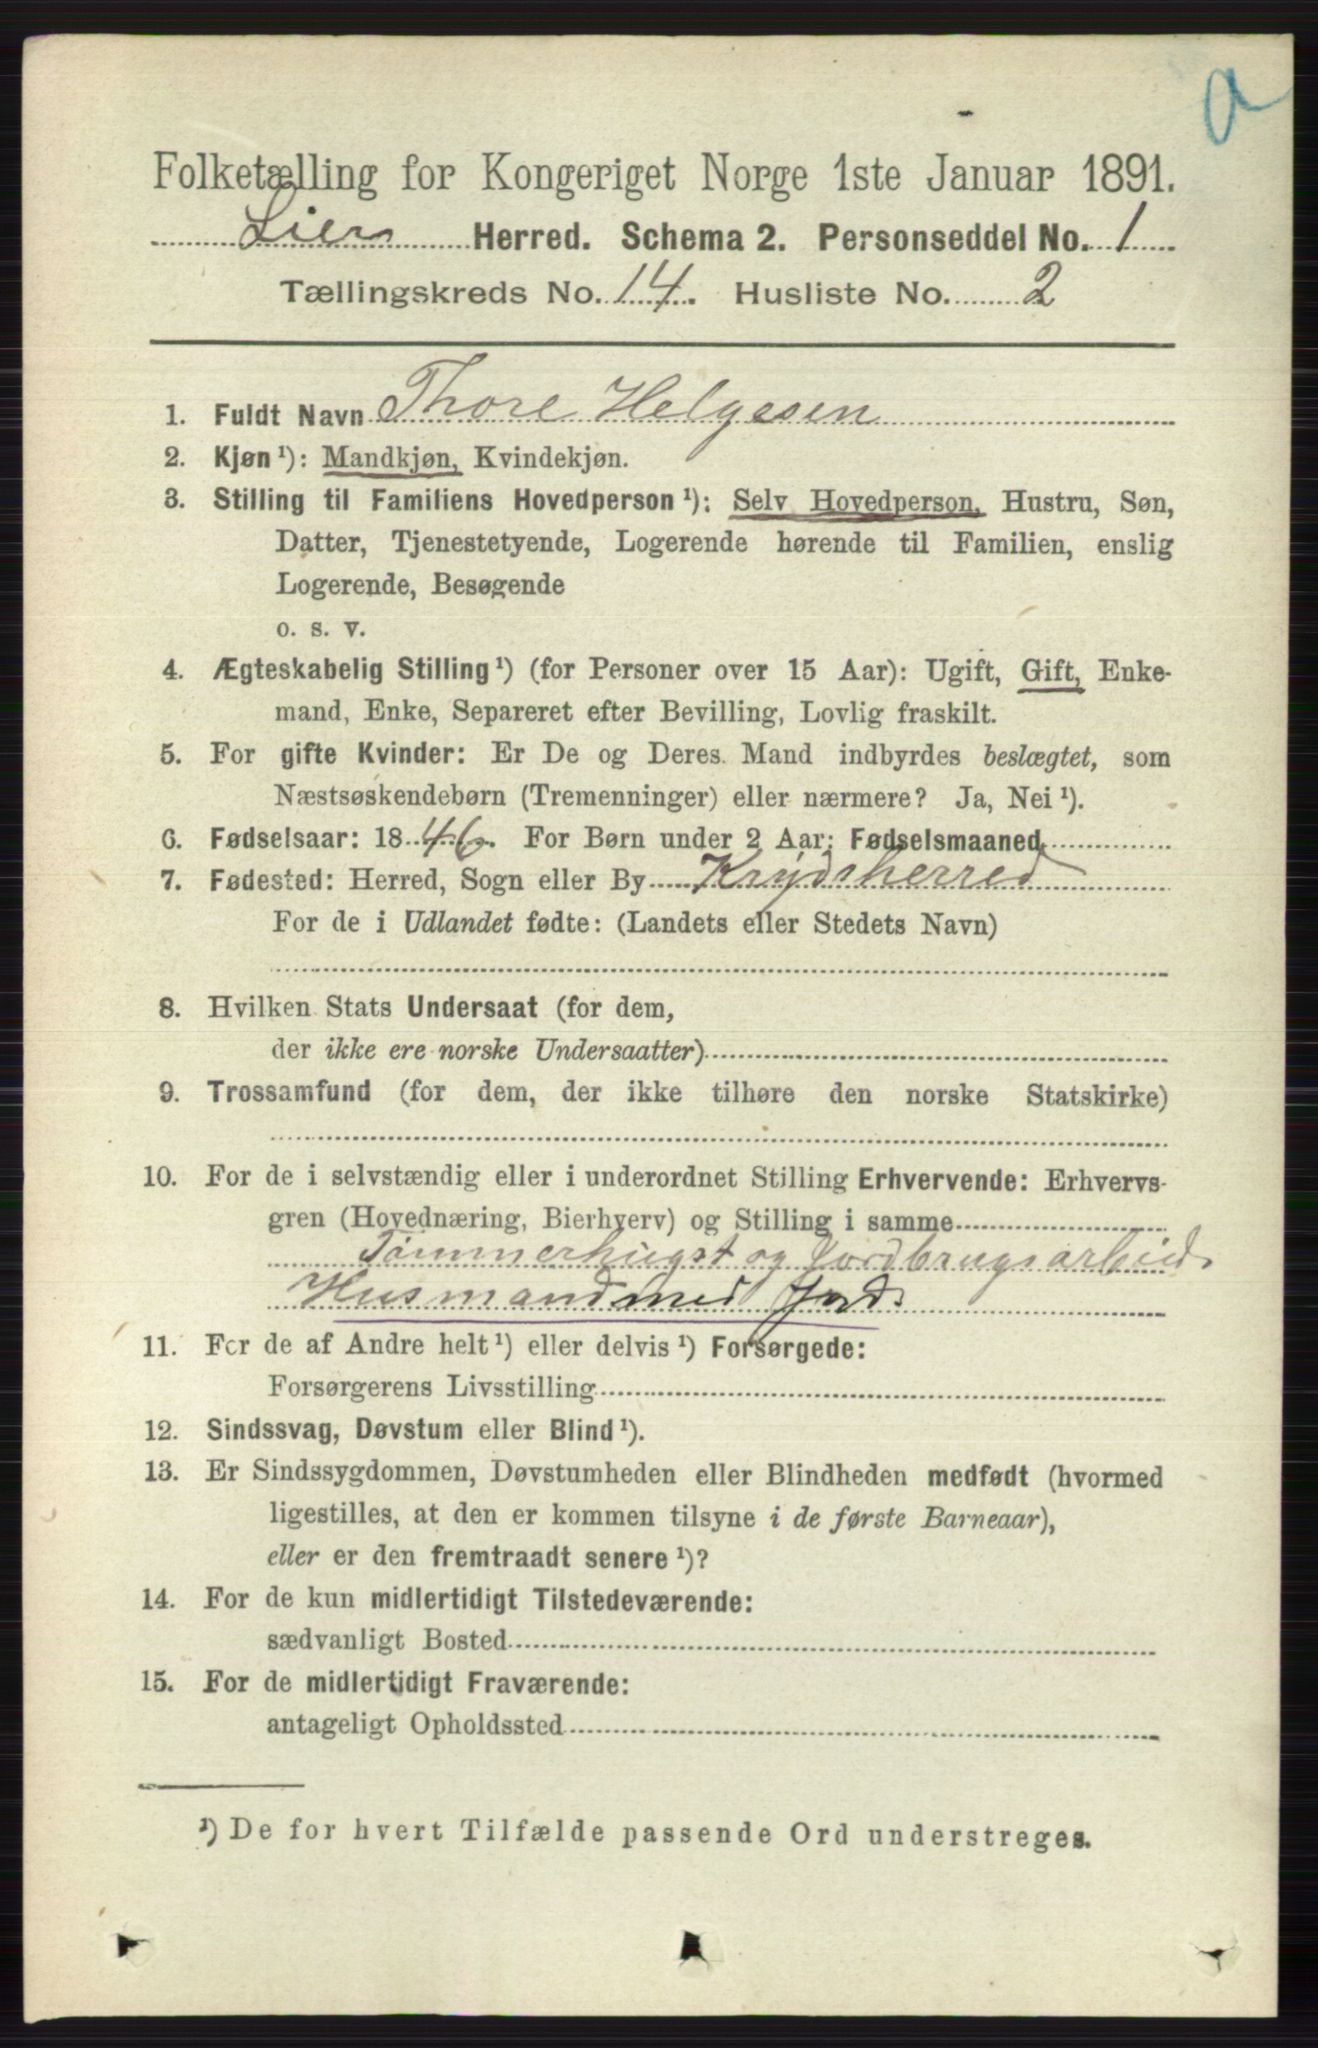 a
Folketælling for Kongeriget Norge 1ste Januar 1891.
Liers Herred. Schema 2. Personseddel No. 1
Tællingskreds No. 14. Husliste No. 2
1. Fuldt Navn Thore Helgesen
2. Kjøn¹): Mandkjøn, Kvindekjøn.
3. Stilling til Familiens Hovedperson¹): Selv Hovedperson, Hustru, Søn,
Datter, Tjenestetyende, Logerende hørende til Familien, enslig
Logerende, Besøgende
o. s. v.
4. Ægteskabelig Stilling¹) (for Personer over 15 Aar): Ugift, Gift, Enke-
mand, Enke, Separeret efter Bevilling, Lovlig fraskilt.
5. For gifte Kvinder: Er De og Deres Mand indbyrdes beslægtet, som
Næstsøskendebørn (Tremenninger) eller nærmere? Ja, Nei¹).
6. Fødselsaar: 1846. For Børn under 2 Aar: Fødselsmaaned
7. Fødested: Herred, Sogn eller By Krydsherred
For de i Udlandet fødte: (Landets eller Stedets Navn)
8. Hvilken Stats Undersaat (for dem,
der ikke ere norske Undersaatter)
9. Trossamfund (for dem, der ikke tilhøre den norske Statskirke)
10. For de i selvstændig eller i underordnet Stilling Erhvervende: Erhvervs-
gren (Hovednæring, Bierhverv) og Stilling i samme
Tømmerhugst og Jordbrugsarbeid.
Husmand med Jord.
11. For de af Andre helt¹) eller delvis¹) Forsørgede:
Forsørgerens Livsstilling
12. Sindssvag, Døvstum eller Blind¹).
13. Er Sindssygdommen, Døvstumheden eller Blindheden medfødt (hvormed
ligestilles, at den er kommen tilsyne i de første Barneaar),
eller er den fremtraadt senere¹)?
14. For de kun midlertidigt Tilstedeværende:
sædvanligt Bosted
15. For de midlertidigt Fraværende:
antageligt Opholdssted
¹) De for hvert Tilfælde passende Ord understreges.